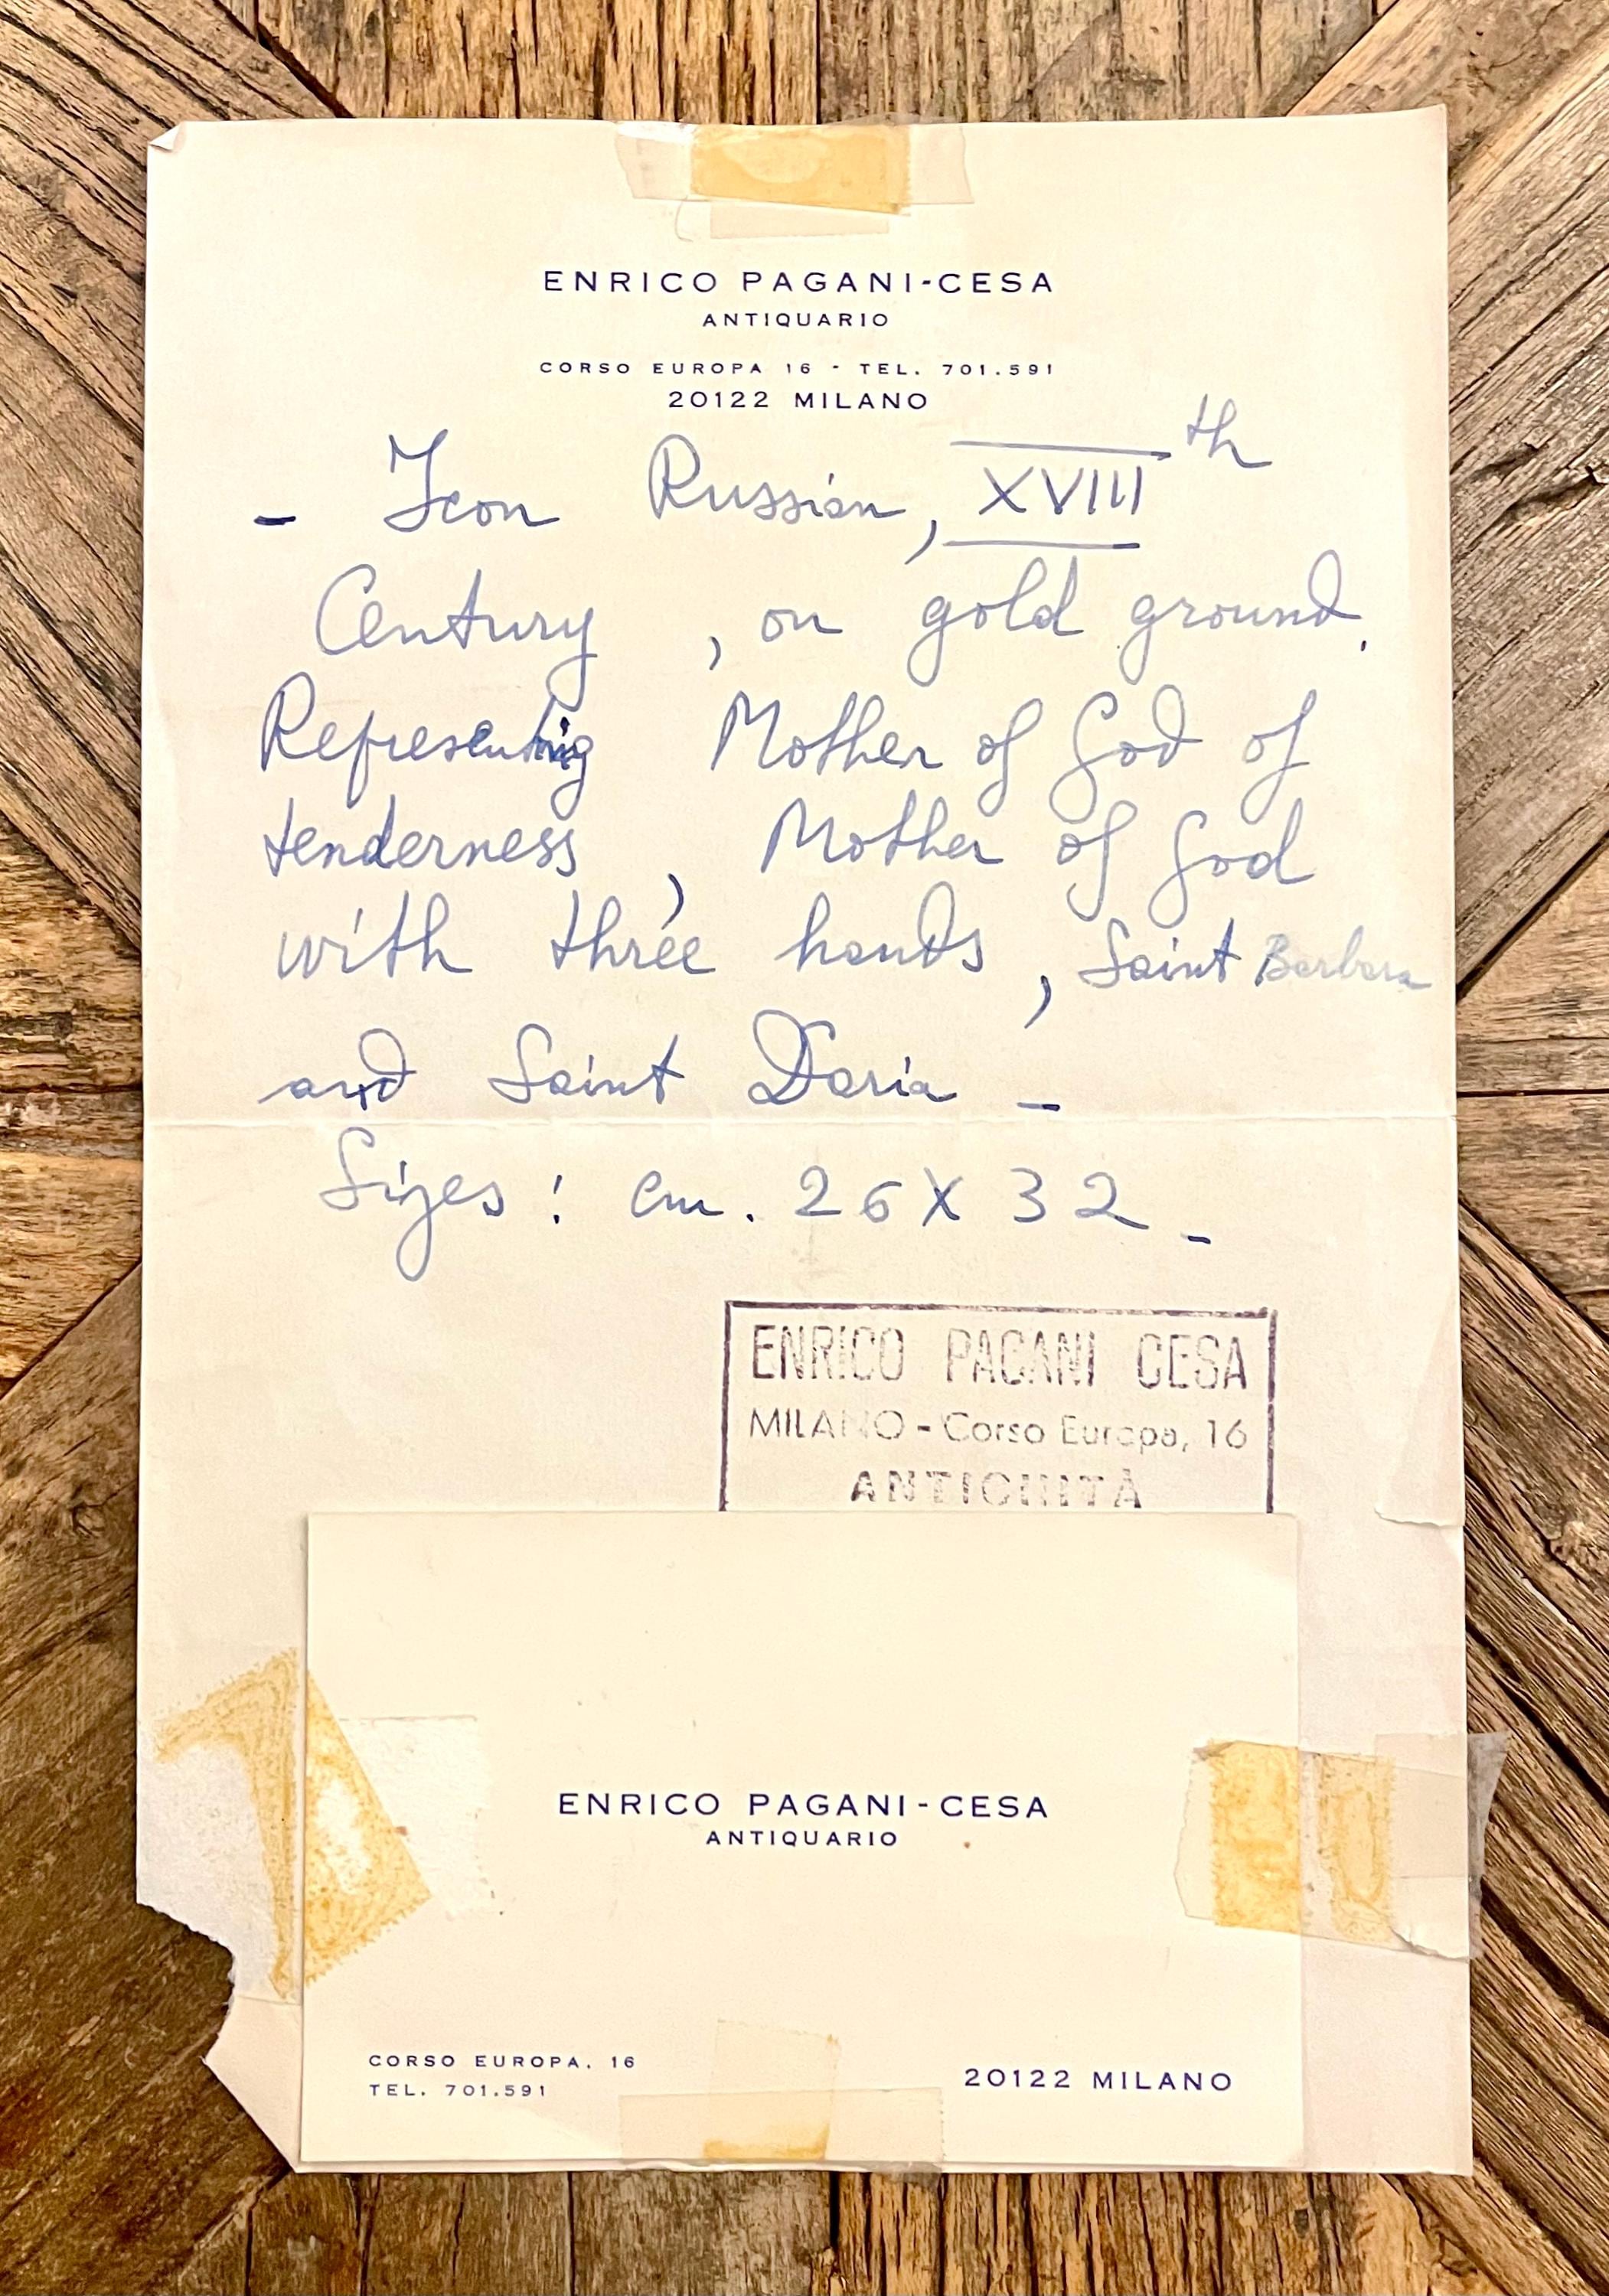 ENRICO PAGANI-CESA
ANTIQUARIO
CORSO EUROPA 16 - TEL. 701.591
20122 MILANO
- Icon Russian, XVIII th
Century , on gold ground.
Representing Mother of God of
tenderness , Mother of God
with three hands , Saint Barbara
and Saint Daria -
Sizes : cm. 26 X 32 -
ENRICO PAGANI CESA
MILANO - Corso Europa, 16
ANTICHITÀ
ENRICO PAGANI-CESA
ANTIQUARIO
CORSO EUROPA, 16
TEL. 701.591
20122 MILANO